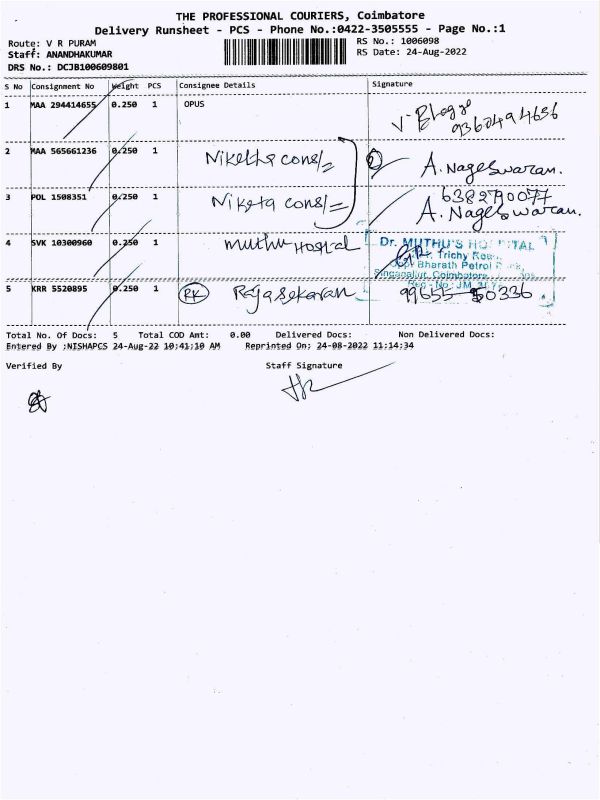 THE PROFESSIONAL COURIERS, Coimbatore
Delivery Runsheet - PCS - Phone No.:0422-3505555 - Page No.:1
Route: V R PURAM
Staff: ANANDHAKUMAR
DRS No.: DCJB100609801
RS No.: 1006098
RS Date: 24-Aug-2022
S No Consignment No Weight PCS Consignee Details Signature
1 MAA 294414655 0.250 1 OPUS
9360494656
2 MAA 565661236 0.250 1 Niketha cons/= A. Nageswaran.
6382790077
3 POL 1508351 0.250 1 Niketa cons/= A. Nageswaran.
4 SVK 10300960 0.250 1 muthu Hospital
Dr. MUTHU'S HOSPITAL
Trichy Road
Bharath Petrol
Singanallur, Coimbatore
5 KRR 5520895 0.250 1 RK Rajasekaran 99655-50336
Total No. Of Docs: 5 Total COD Amt: 0.00 Delivered Docs: Non Delivered Docs:
Entered By :NISHAPCS 24-Aug-22 10:41:10 AM Reprinted On: 24-08-2022 11:14:34
Verified By Staff Signature